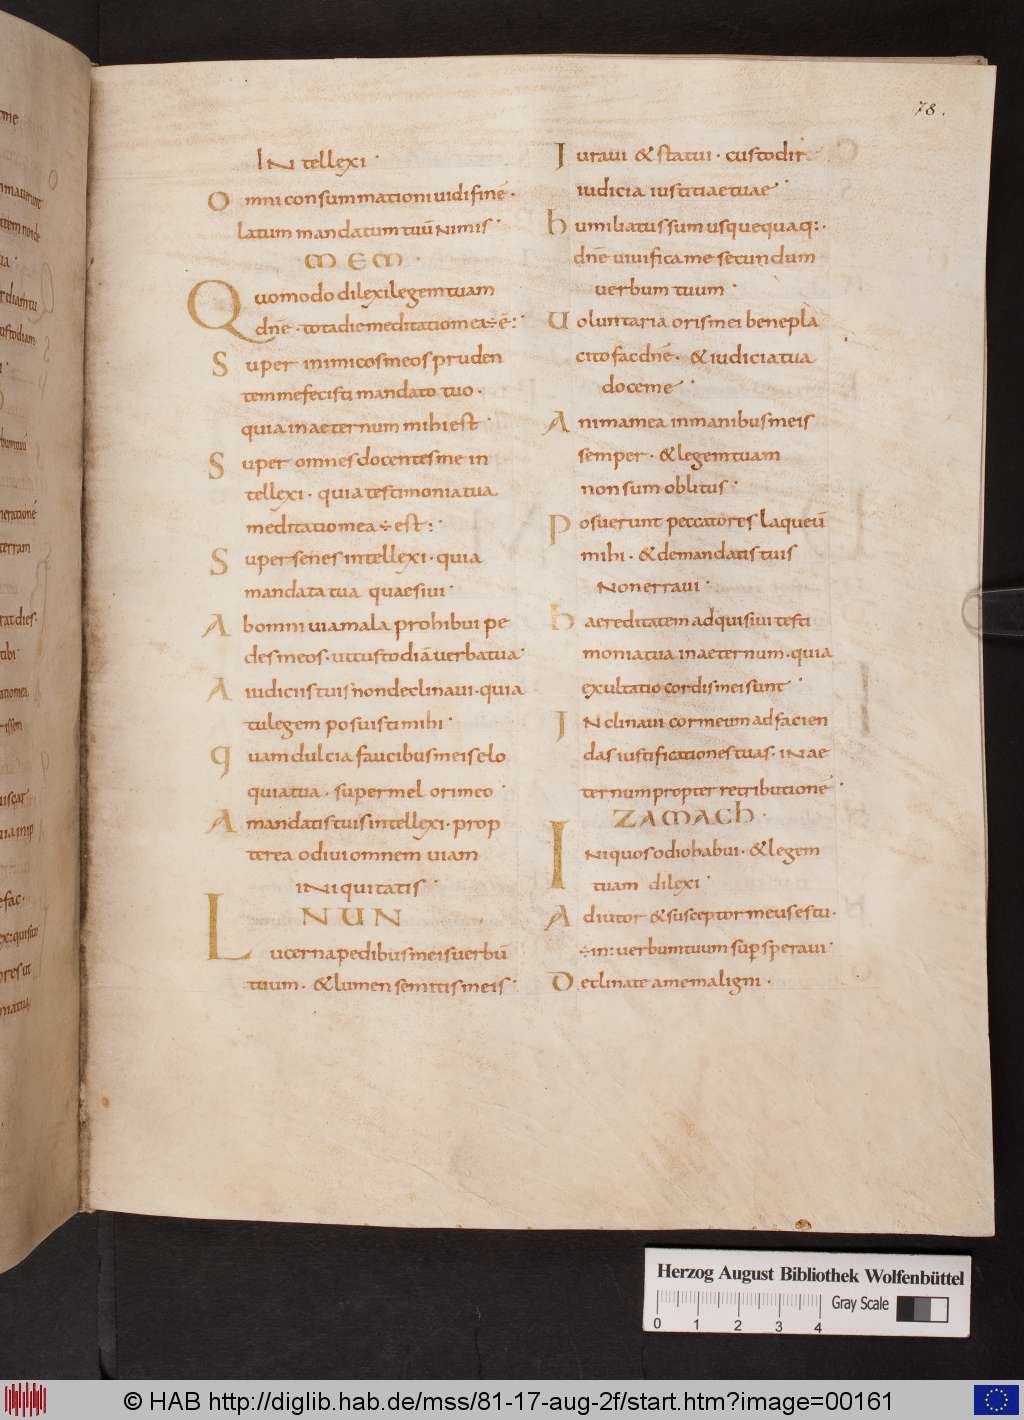 78.
IN tellexi ·
Omni consummationi vidi finē ·
latum mandatum tuū Nimis ·
MEM ·
Quomodo dilexi legem tuam
dn̄e · tota die meditatio mea ÷ ē : ·
Super inimicos meos pruden
tem me fecisti mandato tuo ·
quia in aeternum mihi est ·
Super omnes docentes me in
tellexi · quia testimonia tua
meditatio mea ÷ est : ·
Super senes intellexi · quia
mandata tua quaesivi ·
Ab omni via mala prohibui pe
des meos · ut custodiā verba tua ·
A iudiciis tuis non declinavi · quia
tu legem posuisti mihi ·
quam dulcia faucibus meis elo
quia tua · super mel ori meo ·
A mandatis tuis intellexi · prop
terea odivi omnem viam
iNiquitatis ·
NUN
Lucerna pedibus meis verbū
tuum · & lumen semitis meis ·
Iuravi & statui · custodire
iudicia iustitiae tuae ·
humiliatus sum usquequaq: ·
dn̄e vivifica me secundum
verbum tuum ·
Voluntaria oris mei beneplà
cito fac dn̄e · & iudicia tua
doce me ·
Anima mea in manibus meis
semper · & legem tuam
non sum oblitus ·
Posuerunt peccatores laqueū
mihi · & de mandatis tuis
Non erravi ·
haereditatem adquisivi testi
monia tua in aeternum · quia
exultatio cordis mei sunt ·
INclinavi cor meum ad facien
das iustificationes tuas · iN ae
ternum propter retributionē ·
ZAMACH ·
INiquos odio habui · & legem
tuam dilexi ·
Adiutor & susceptor meus es tu ·
÷ in : verbum tuum sup speravi ·
Declinate a me maligni ·
Herzog August Bibliothek Wolfenbüttel
Gray Scale
0 1 2 3 4
© HAB http://diglib.hab.de/mss/81-17-aug-2f/start.htm?image=00161